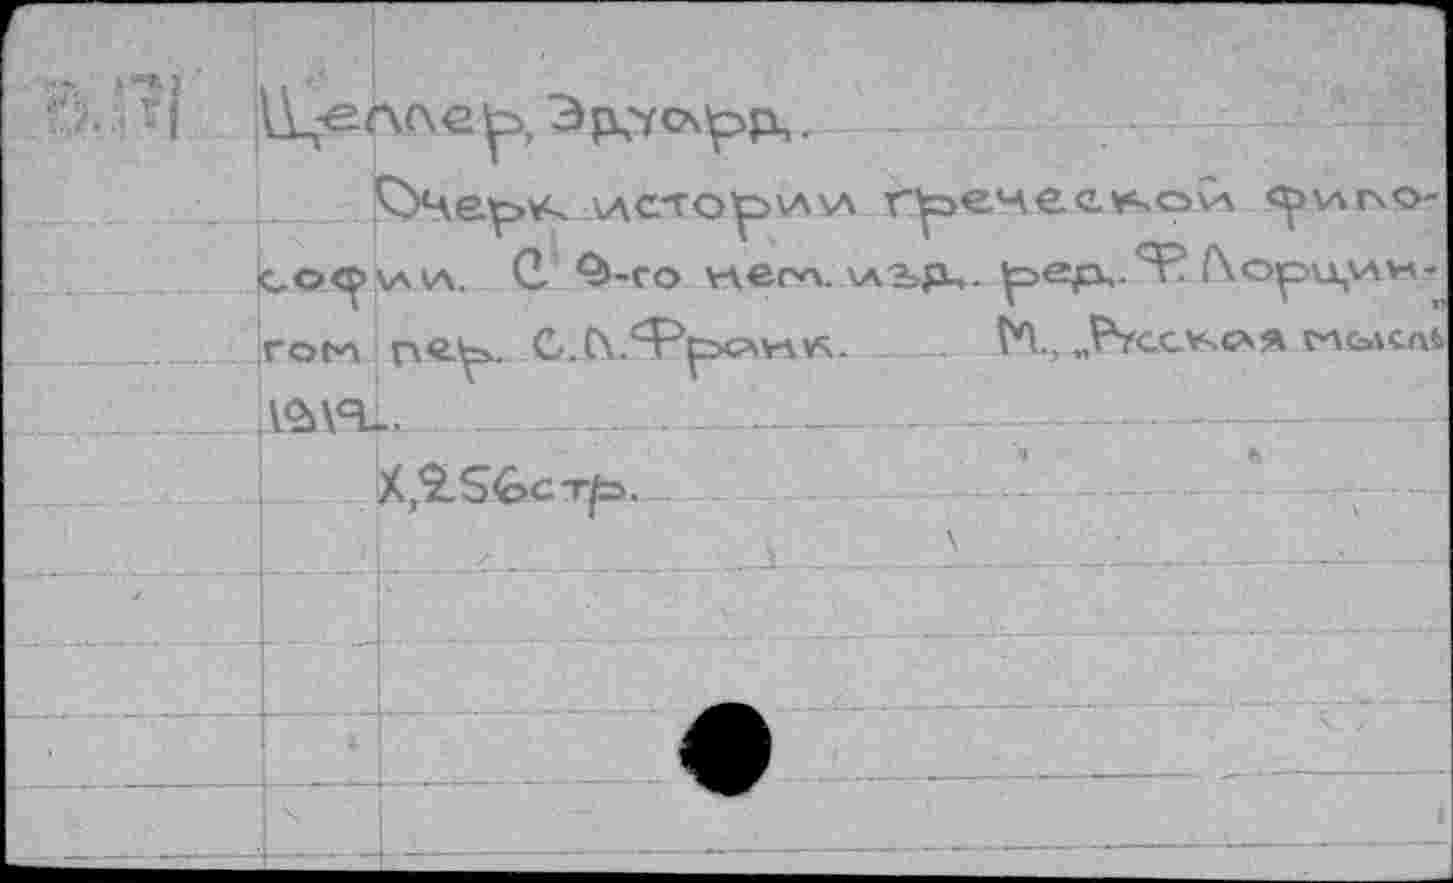 Целлер, Эдуард.
Очерк истории греческой фило-
софии. С 9-го нем. изд. ред. Ф. Лорцин-
гом пер. С.Л.Франк. М., „Русская мысль"
1912.
X, 256стр.